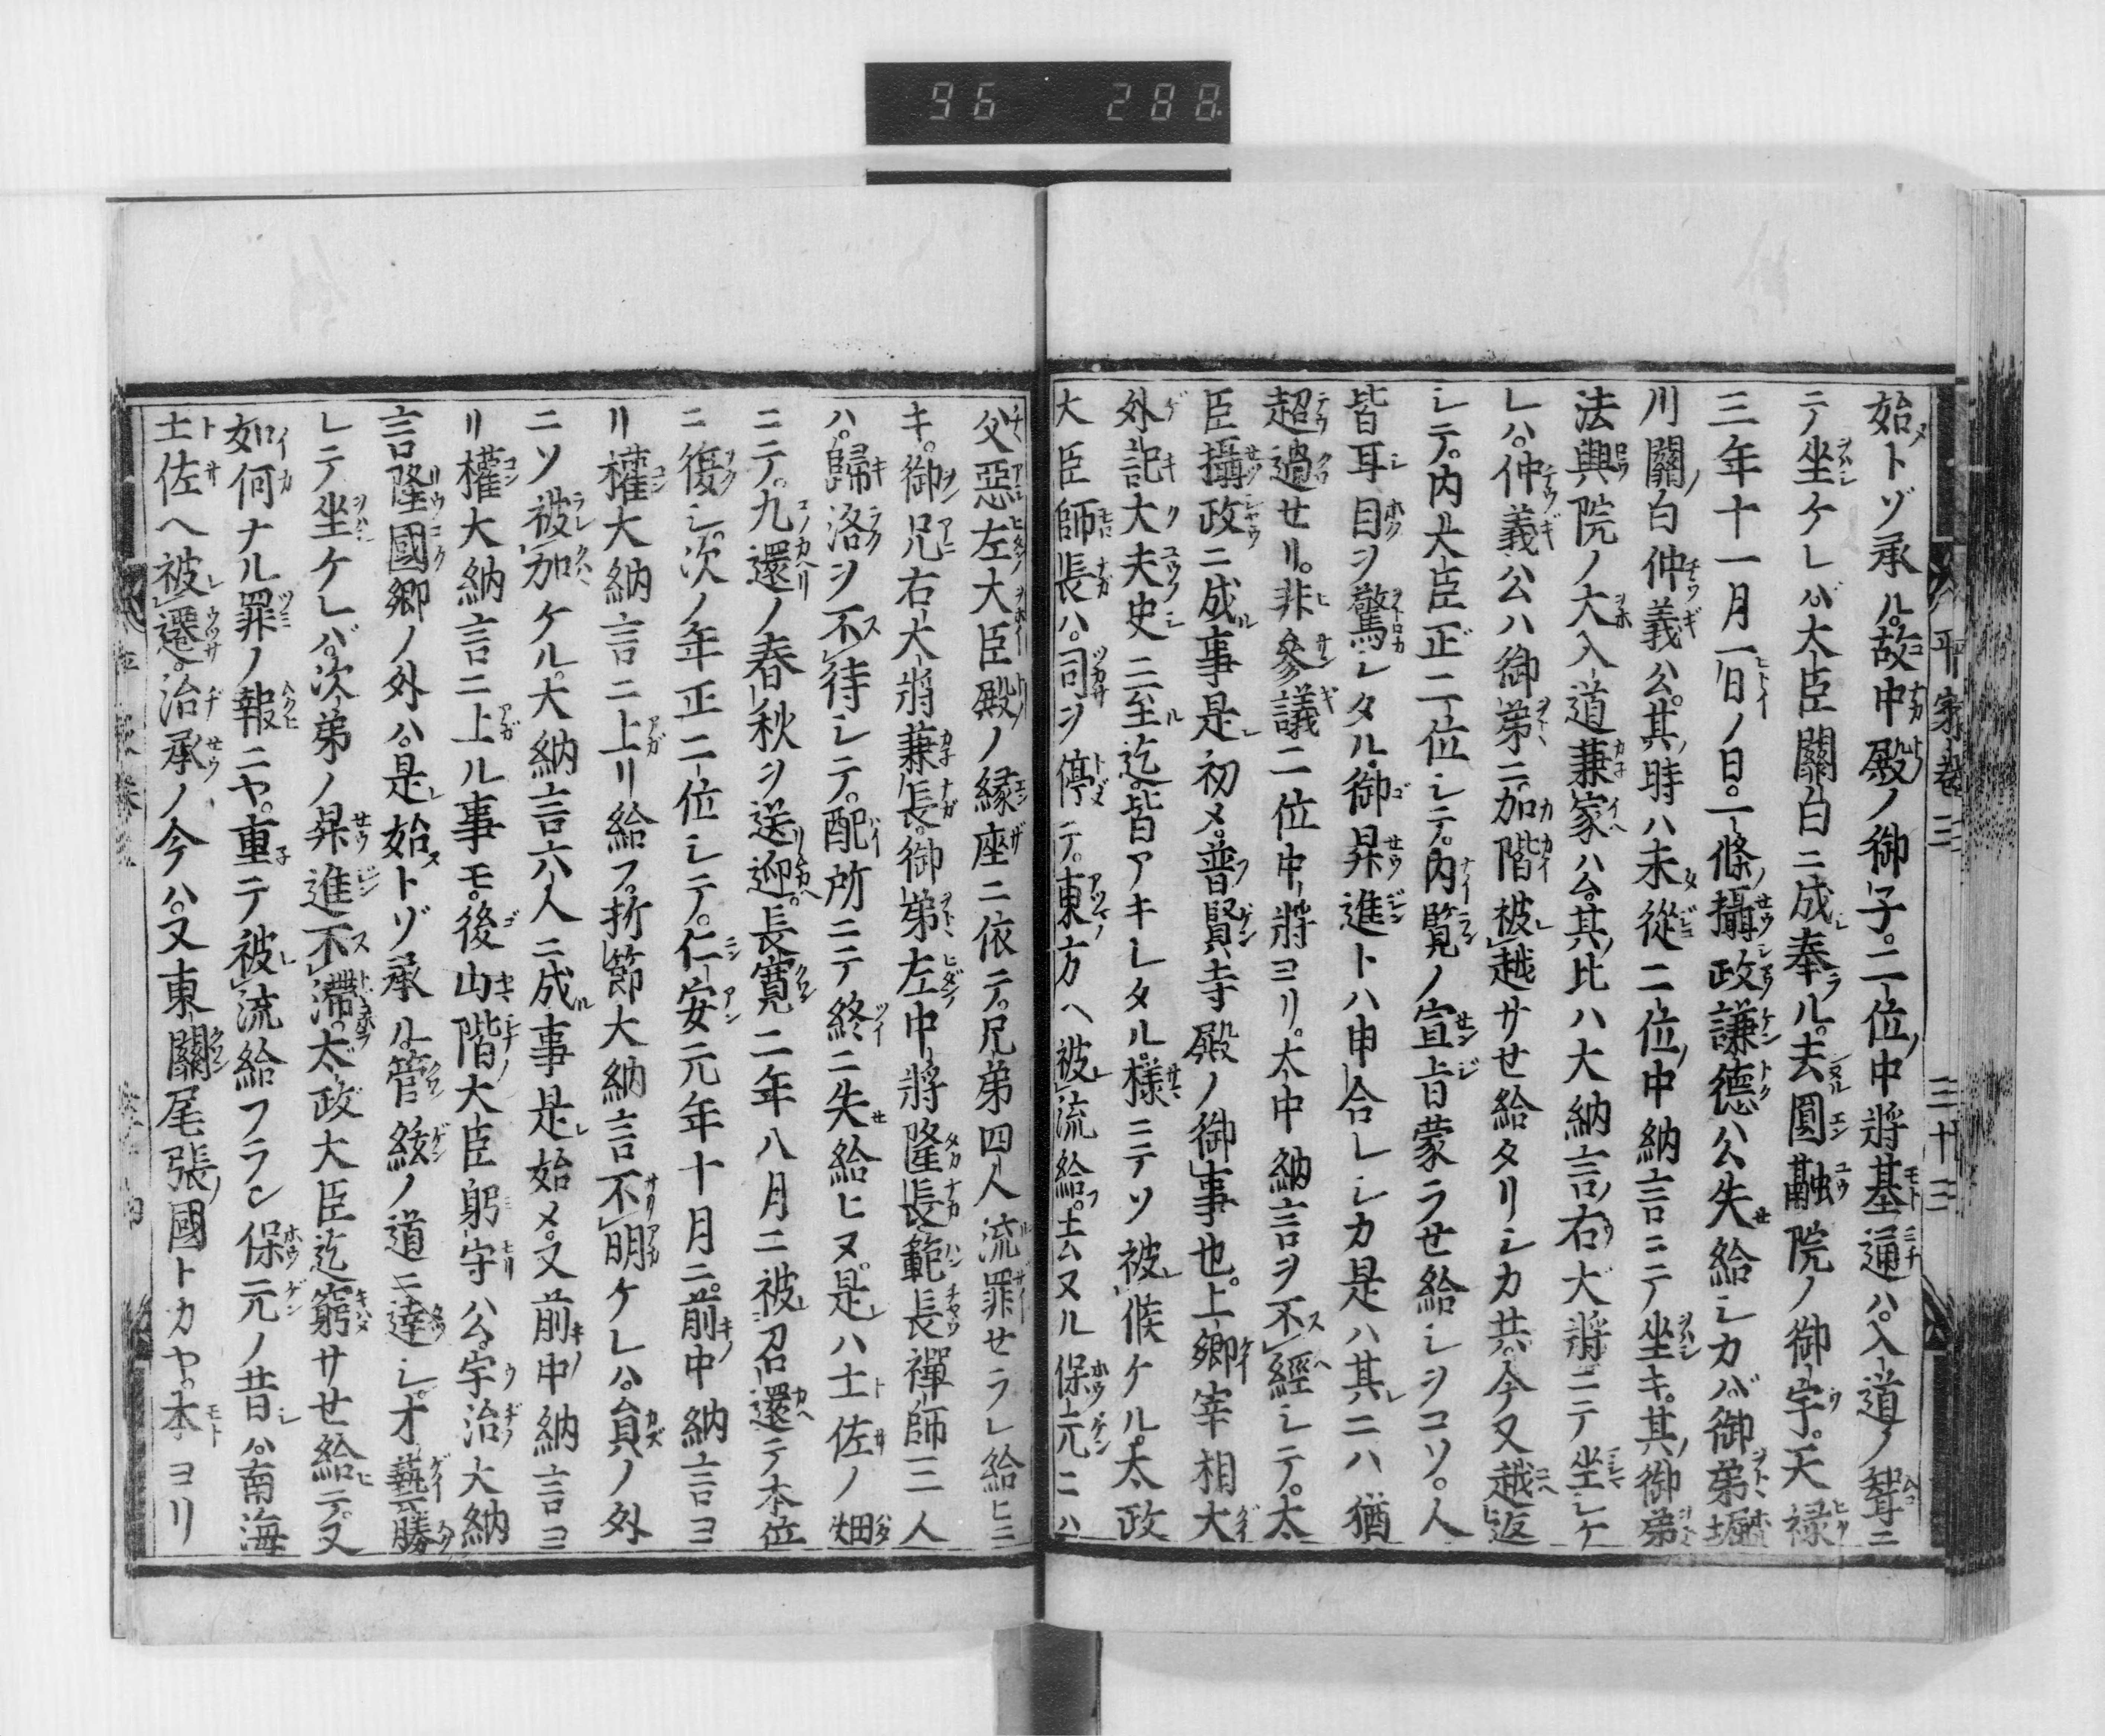 96 288
平家卷三 三十三
始トゾ承ル。故中殿ノ御子。二位ノ中將基通ハ。入道ノ聟ニ
テ坐ケレバ。大臣關白ニ成奉ル。去圓融院ノ御宇。天禄
三年十一月一日ノ日。一條ノ攝政謙德公失給シカバ。御弟堀
川ノ關白仲義公。其時ハ未從二位ノ中納言ニテ坐キ。其ノ御弟
法興院ノ大入道兼家公。其ノ比ハ大納言ノ右大將ニテ坐シケ
レハ。仲義公ハ御弟ニ。加階被越サせ給タリシカ共。今又越返
シテ。内大臣正二位シテ。内覽ノ宣旨蒙ラせ給シヲコソ。人
皆耳目ヲ驚シタル。御昇進トハ申合レシカ是ハ其ニハ猶
超過せリ。非參議二位中將ヨリ。大中納言ヲ不經シテ。太
臣攝政ニ成事是初メ。普賢寺殿ノ御事也。上卿宰相大
外記大夫史ニ至迄。皆アキレタル樣ニテソ被候ケル。太政
大臣師長ハ。司ヲ停テ。東方ヘ被流給。去ヌル保元ニハ
父惡左大臣殿ノ縁座ニ依テ。兄弟四人流罪せラレ給ヒニ
キ。御兄右大將兼長。御弟左中將隆長範長禪師三人
ハ。歸洛ヲ不待シテ。配所ニテ終ニ失給ヒヌ。是ハ土佐ノ畑
ニテ。九還ノ春秋ヲ送迎。長寛二年八月ニ被召還テ本位
ニ復シ。次ノ年正二位シテ。仁安元年十月ニ。前中納言ヨ
リ權大納言ニ上リ給フ。折節大納言不明ケレハ。員ノ外
ニソ被加ケル。大納言六人ニ成事是始メ。又前中納言ヨ
リ權大納言ニ上ル事モ。後山階大臣躬守公。宇治大納
言隆國卿ノ外ハ。是始トゾ承ル。管絃ノ道ニ達シ。才藝勝
レテ坐ケレバ。次弟ノ昇進不滯。太政大臣迄窮サせ給テ。又
如何ナル罪ノ報ニヤ。重テ被流給フラン保元ノ昔ハ。南海
土佐ヘ被遷。治承ノ今ハ。又東關尾張國トカヤ。本ヨリ